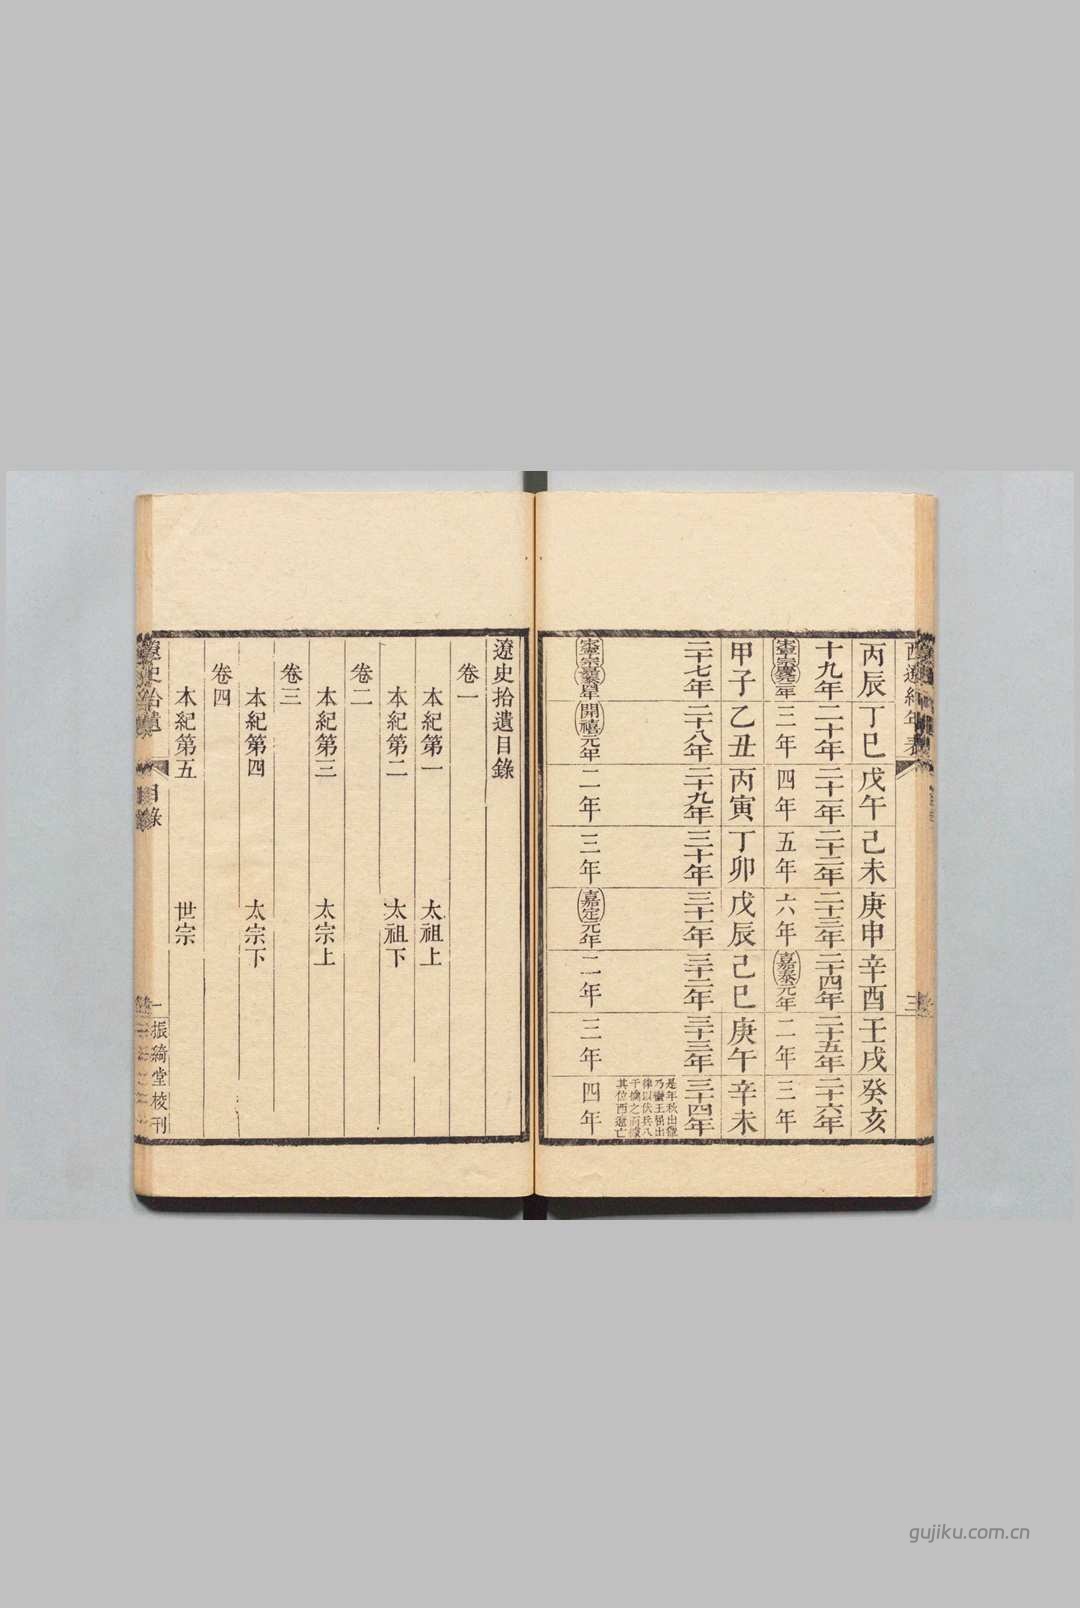 西遼紀年表
三
丙辰 丁巳 戊午 己未 庚申 辛酉 壬戌 癸亥
十九年 二十年 二十一年 二十二年 二十三年 二十四年 二十五年 二十六年
寧宗慶元二年 三年 四年 五年 六年 嘉泰元年 二年 三年
甲子 乙丑 丙寅 丁卯 戊辰 己巳 庚午 辛未
二十七年 二十八年 二十九年 三十年 三十一年 三十二年 三十三年 三十四年
是年秋出獵
乃蠻王屈出
律以伏兵八
千擒之而據
其位西遼亡
開禧元年 二年 三年 嘉定元年 二年 三年 四年
遼史拾遺目錄
卷一
本紀第一 太祖上
本紀第二 太祖下
卷二
本紀第三 太宗上
卷三
本紀第四 太宗下
卷四
本紀第五 世宗
遼史拾遺 目錄 一 振綺堂校刊
gujiku.com.cn